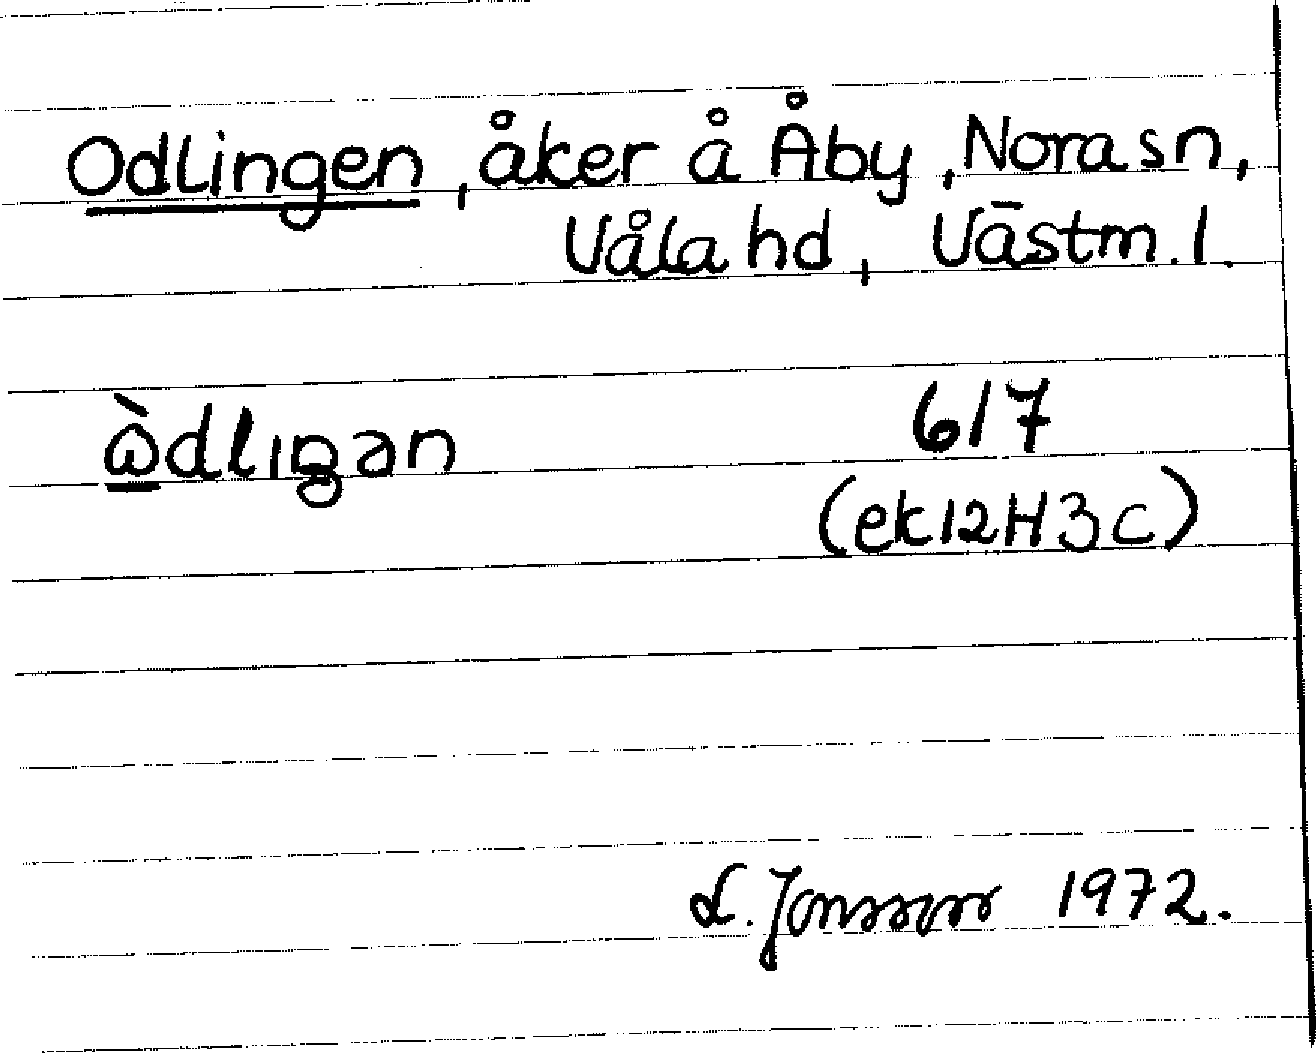 Odlingen, åker å Åby, Nora sn,
Våla hd, Västm. l.
ὼ̲dlıŋən 617
(ek 12H3c)
L. Jonsson 1972.